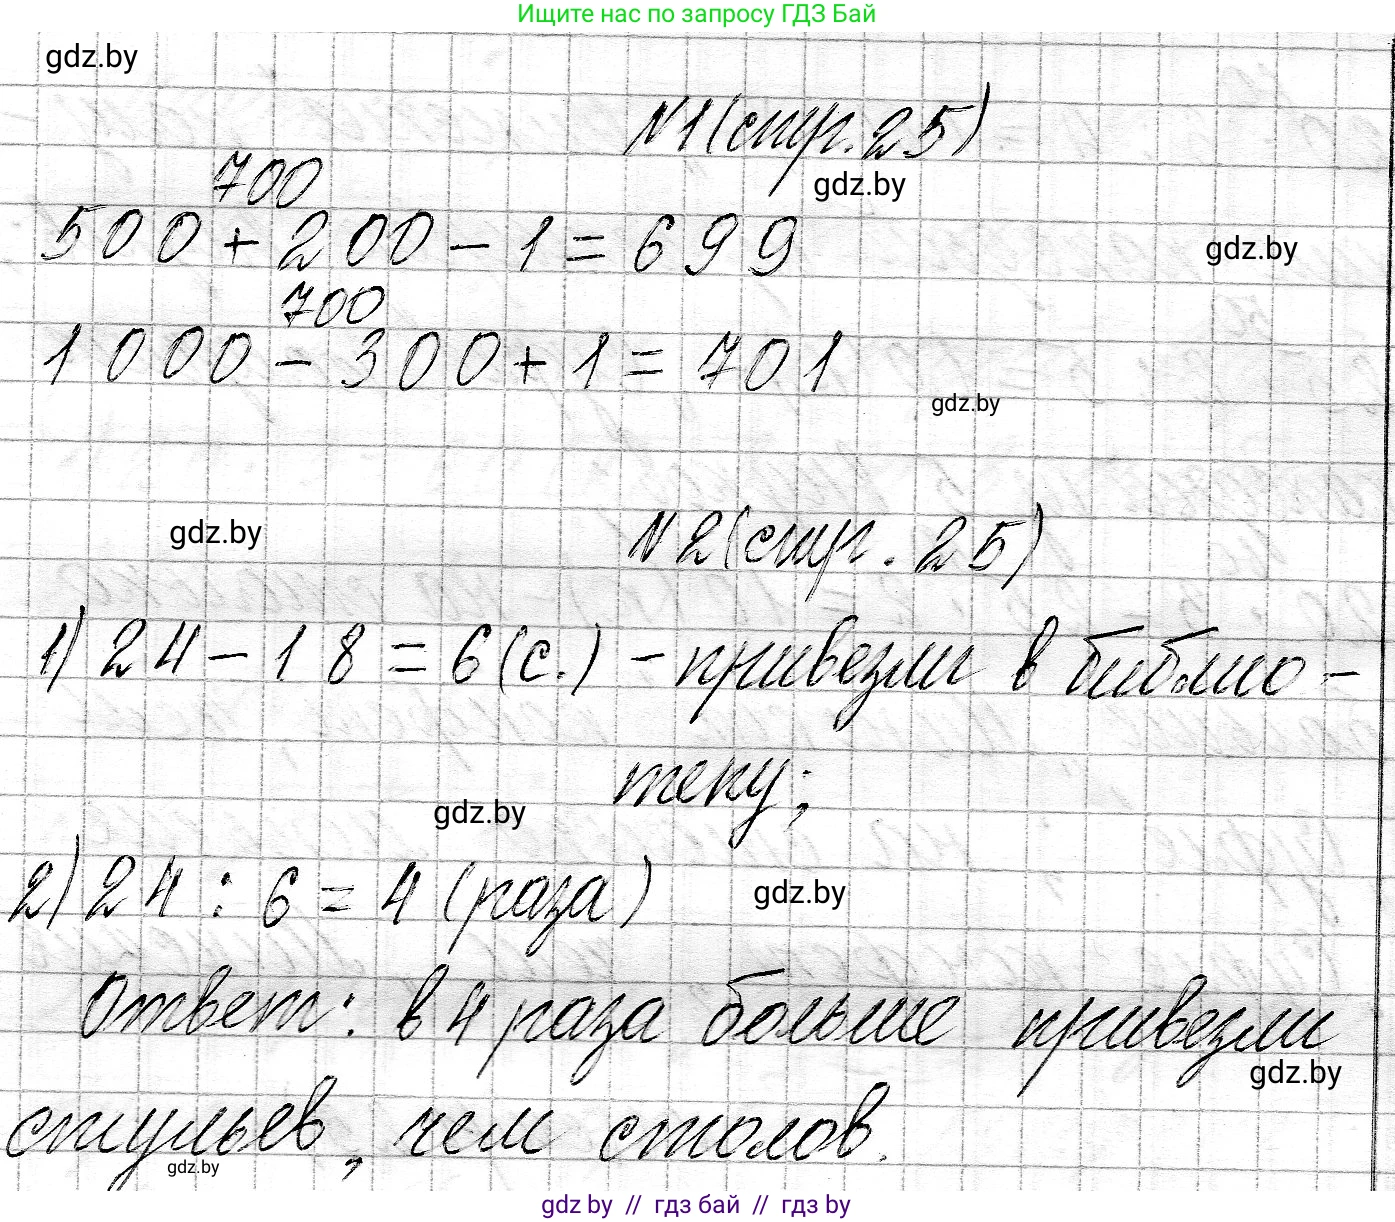 Ищите нас по запросу ГДЗ Бай
gdz.by
№1 (стр. 25)
gdz.by
700
500 + 200 - 1 = 699
gdz.by
700
1000 - 300 + 1 = 701
gdz.by
№2 (стр. 25)
gdz.by
1) 24 - 18 = 6 (с.) - привезли в библио-
теку;
gdz.by
2) 24 : 6 = 4 (раза)
gdz.by
Ответ: в 4 раза больше привезли
gdz.by
стульев, чем столов.
gdz.by
gdz by // гдз бай // гдз by